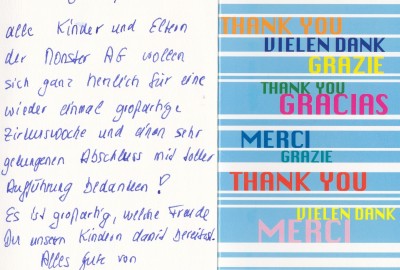 alle Kinder und Eltern
der Monster AG wollen
sich ganz herzlich für eine
wieder einmal großartige
Zirkuswoche und einen sehr
gelungenen Abschluss mit toller
Aufführung bedanken!
Es ist großartig, welche Freude
Du unseren Kindern damit bereitest.
Alles Gute von
THANK YOU
VIELEN DANK
GRAZIE
THANK YOU
GRACIAS
MERCI
GRAZIE
THANK YOU
VIELEN DANK
MERCI